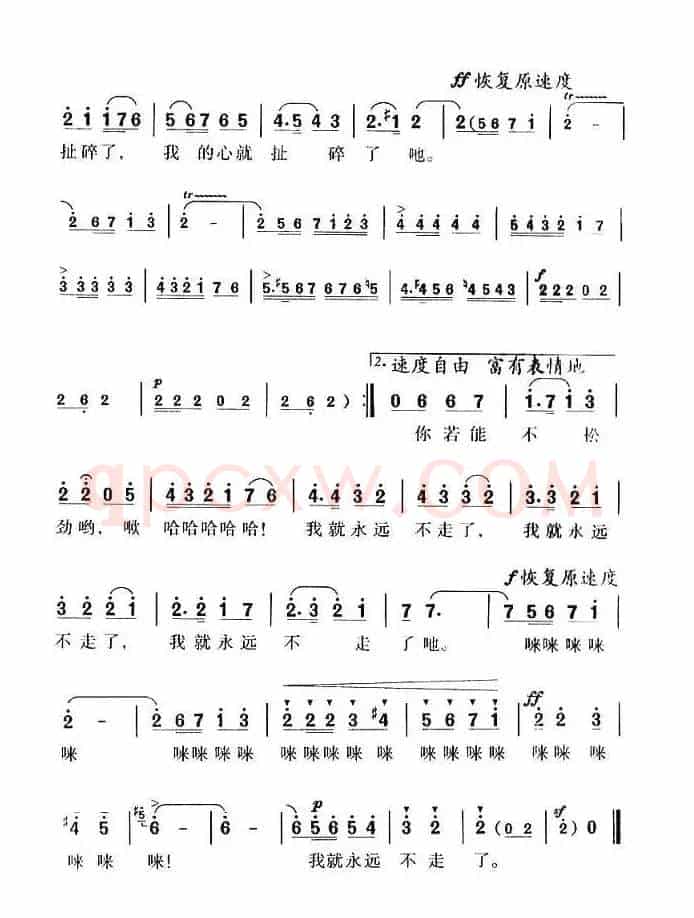 ff 恢复原速度
tr tr
2 1 1 7 6 | 5 6 7 6 5 | 4. 5 4 3 | 2. #1 2 | 2 (5 6 7 1 | 2 - |
扯碎了， 我 的心就 扯 碎 了 吔。
tr
2 6 7 1 3 | 2 - | 2 5 6 7 1 2 3 | 4 4 4 4 4 | 5 4 3 2 1 7 |
f
3 3 3 3 3 | 4 3 2 1 7 6 | 5. #5 6 7 6 7 6 ♮5 | #4. 4 5 6 ♮4 5 4 3 | 2 2 2 0 2 |
2. 速度自由 富有表情地
p
2 6 2 | 2 2 2 0 2 | 2 6 2 ) :‖ 0 6 6 7 | 1. 7 1 3 |
你若能 不 松
2 2 0 5 | 4 3 2 1 7 6 | 4. 4 3 2 | 4 3 3 2 | 3. 3 2 1 |
劲哟， 噷 哈哈哈哈哈！ 我就永远 不走了， 我就永远
f 恢复原速度
3 2 2 1 | 2. 2 1 7 | 2. 3 2 1 | 7 7. | 7 5 6 7 1 |
不走了， 我就永远 不 走 了吔。 咪咪咪咪
ff
2 - | 2 6 7 1 3 | 2 2 2 3 #4 | 5 6 7 1 | 2 2 3 |
咪 咪咪咪咪 咪咪咪咪咪 咪咪咪咪 咪咪 咪
p sf
#4 5 | #5 6 - | 6 - | 6 5 6 5 4 | 3 2 | 2 (0 2 | 2) 0 ‖
咪咪 咪！ 我就永远 不走 了。
qpcxw.com